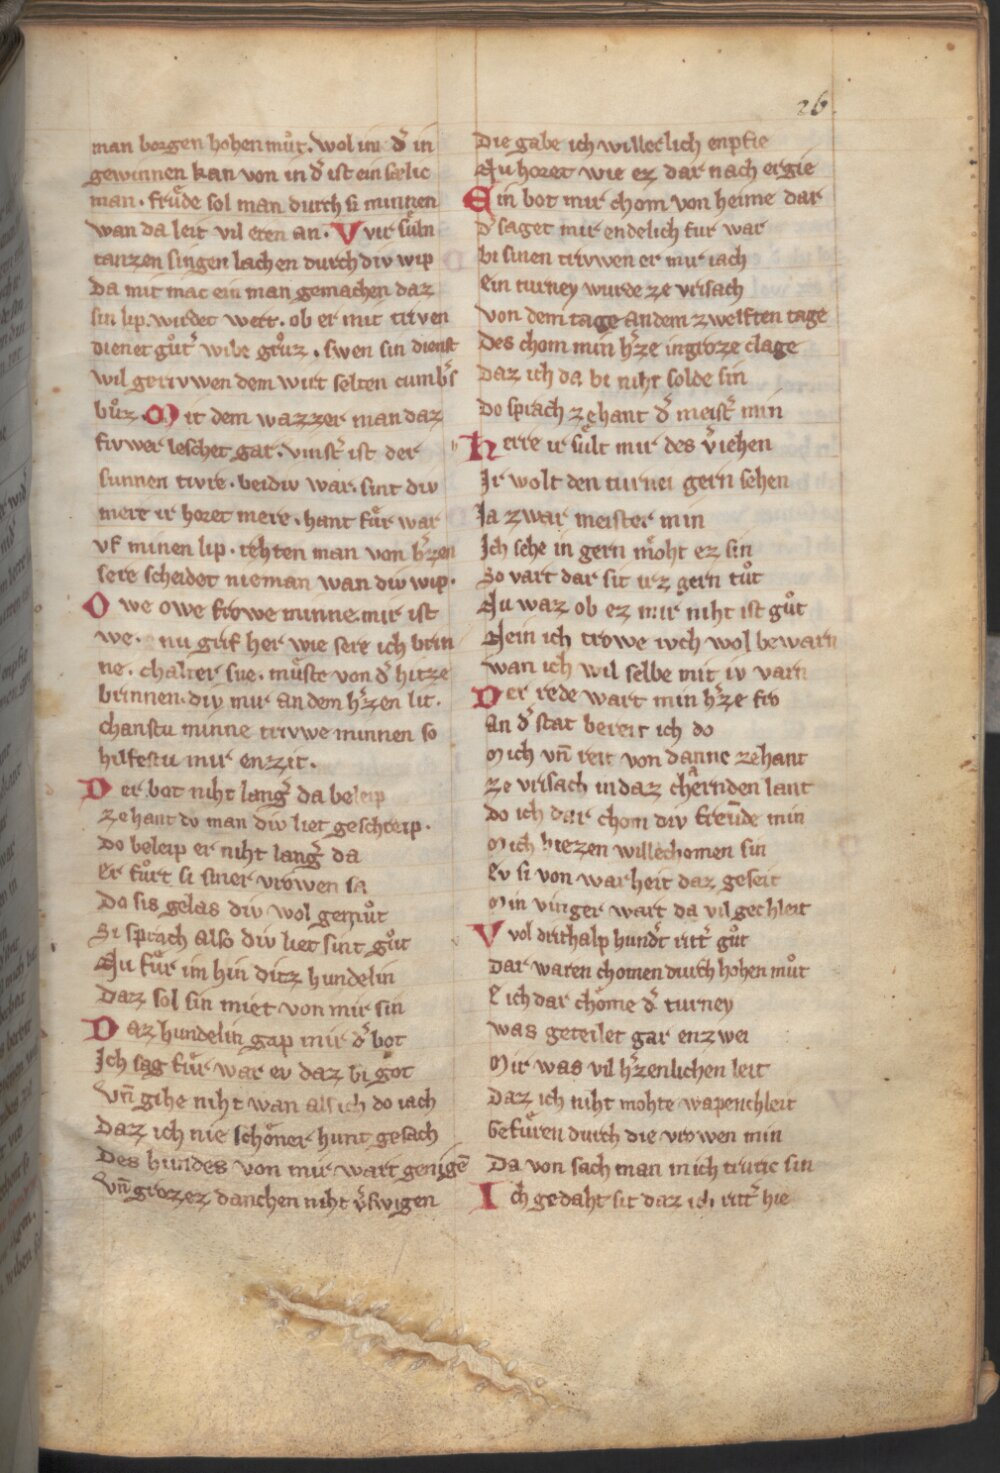 26.
man borgen hohen muͦt. Wol im d᷑ in
gewinnen kan von in d᷑ ist ein sælic
man. frude sol man durch si minnen
wan da leit vil eren an. Vvir suln
tanzen singen lachen durch div wip
Da mit mac ein man gemachen daz
sin lip. wirdet wert. ob er mit triven
dienet guͦt᷑ wibe gruͦz. swen sin dienst
wil getrivwen dem wirt selten cumb᷑s
buͦz. Mit dem wazzer man daz
fivwer leschet gar. vinst᷑ ist der
sunnen tivre. beidiv war. sint div
mere ir horet mere. hant fuͤr war
vf minen lip. rehten man von h᷑zen
sere scheidet nieman wan div wip.
Owe owe frowe minne mir ist
we. nu grif her wie sere ich brin
ne. chalter sne. muͤste von d᷑ hitze
brinnen. div mir an dem h᷑zen lit.
chanstu minne trivwe minnen so
hilfestu mir enzit.
Der bot niht lang᷑ da beleip
zehant do man div liet geschreip.
Do beleip er niht lang᷑ da
Er fuͦrt si siner vrowen sa
Do sis gelas div wol gemuͦt
Si sprach also div liet sint guͦt
Nu fuͤr im hin ditz hundelin
Daz sol sin miet von mir sin
Daz hundelin gap mir d᷑ bot
Ich sag fuͤr war ev daz bi got
Vn̄ gihe niht wan als ich do iach
Daz ich nie schoͤner hunt gesach
Des hundes von mir wart genigē
Vn̄ grozez danchen niht v᷑swigen
Die gabe ich willeclich enpfie
Nu horet wie ez dar nach ergie
Ein bot mir chom von heime dar
d᷑ saget mir endelich fur war
bi sinen trivwen er mir iach
Ein turney wurde ze vrisach
Von dem tage an dem zwelften tage
Des chom min h᷑ze in groze clage
Daz ich da bi niht solde sin
Do sprach zehant d᷑ meist᷑ min
Herre ir suͤlt mir des v᷑iehen
Ir wolt den turnei gern sehen
Ja zwar meister min
Ich sehe in gern moͤht ez sin
So vart dar sit irz gern tuͦt
Nu waz ob ez mir niht ist guͦt
Nein ich trowe ivch wol bewarn
wan ich wil selbe mit iv varn
Der rede wart min h᷑ze fro
an d᷑ stat bereit ich do
Mich vn̄ reit von danne zehant
ze vrisach in daz chærnden lant
Do ich dar chom div freude min
Mich hiezen willechomen sin
Ev si von warheit daz geseit
Min vinger wart da vil gechleit
Vvol drithalp hund᷑t ritt᷑ guͦt
Dar waren chomen durch hohen muͦt
E ich dar choͤme d᷑ turney
was geteilet gar enzwei
Mir was vil h᷑zenlichen leit
Daz ich niht mohte wapenchleit
Gefuͤren durch die vrowen min
Da von sach man mich truric sin
Ich gedaht sit daz ich ritt᷑ hie